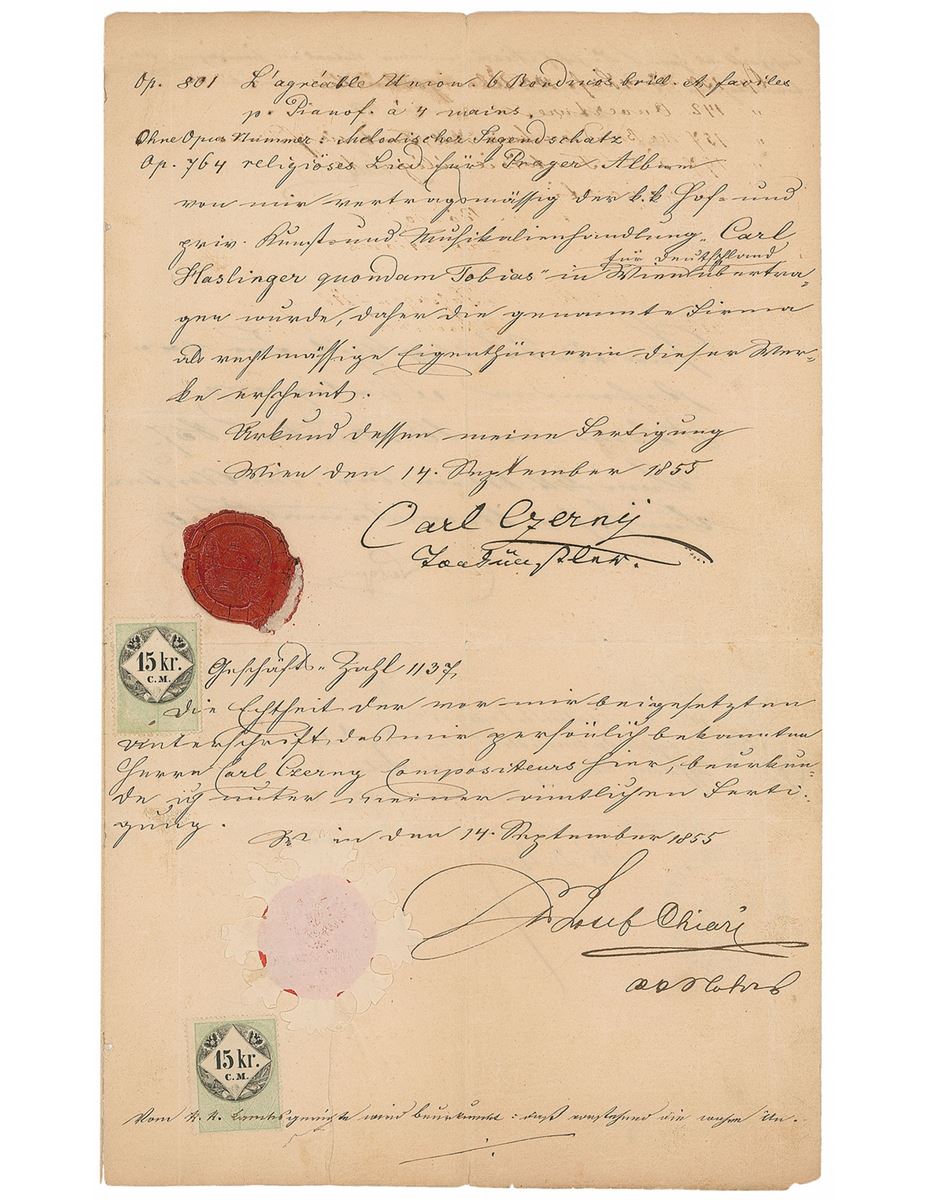 Op. 801 L'agréable Union. 6 Rondinos brill. et faciles
p. Pianof. à 4 mains.
Ohne Opus Nummer: Melodischer Jugendschatz
Op. 764 religiöses Lied für Prager Album
von mir vertragsmässig der k.k Hof- und
priv. Kunst- und Musikalienhandlung „Carl
für Deutschland
Haslinger quondam Tobias" in Wien übertra-
gen wurde, daher die genannte Firma
als rechtmässige Eigenthümerin dieser Wer-
ke erscheint.
Urkund dessen meine Fertigung
Wien den 14. September 1855
Carl Czerny
Tonkünstler.
15 kr.
C.M.
Geschäfts-Zahl 1137.
Die Echtheit der vor mir beigesetzten
Unterschrift des mir persönlich bekannten
Herrn Carl Czerny Compositeurs hier, beurkun-
de ich unter meiner ämtlichen Ferti-
gung.
Wien den 14. September 1855
Josef Chiari
Notar
15 kr.
C.M.
Vom k.k. wird beurkundet: daß vorstehend die wahre